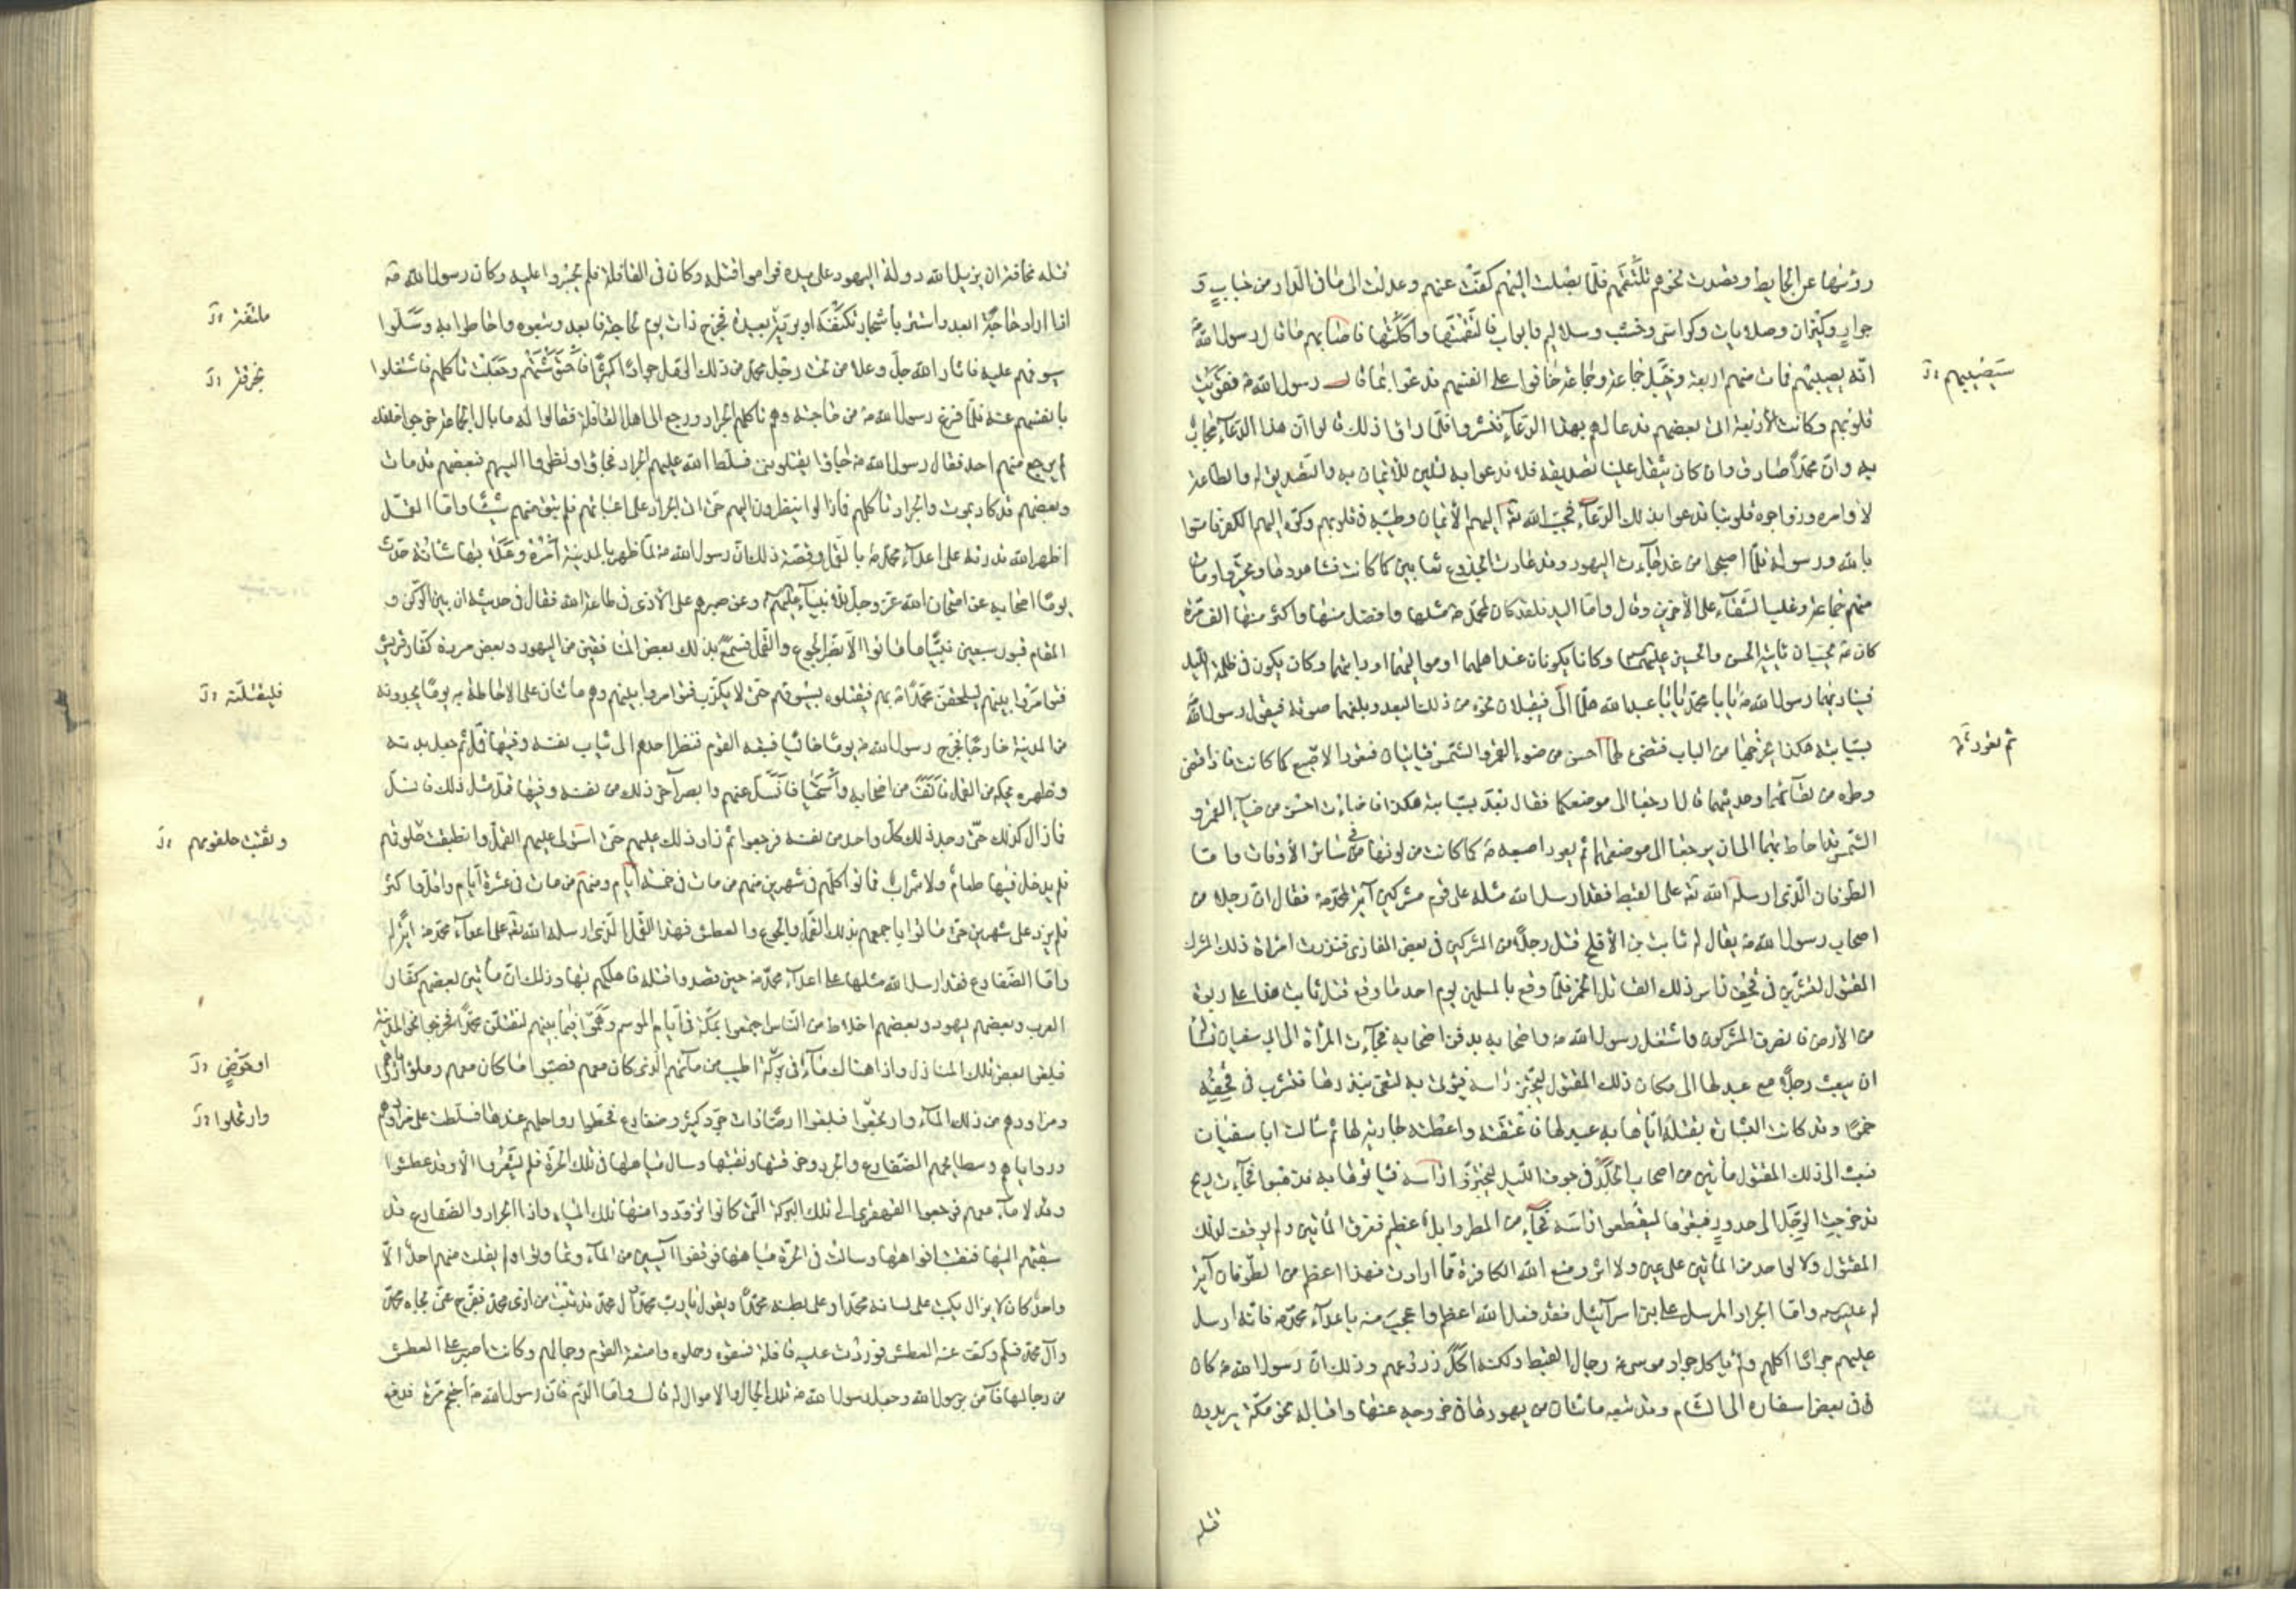 رؤسها عن الحايط وقصدت نحوهم تلتقمهم فلما وصلت اليهم كفت عنهم وعدلت الى ما فى الدار من حباب و
جرار وكيزان وصلايات وكراسى وخشب وسلاليم وابواب فالتقمتها واكلتها فاصابهم ما قال رسول الله ص
انه يصيبهم فمات منهم اربعة وخبل جماعة وجماعة خافوا على انفسهم فدعوا بما قال رسول الله ص فقويت
سيصيبهم
قلوبهم وكانت الأربعة اتى بعضهم فدعا لهم بهذا الدعآء فنشروا فلما راوا ذلك قالوا ان هذا الدعآء مجاب
به وان محمدا صادق وان كان يثقل علينا تصديقه فلا ندعوا به لتلين للأيمان به والتصديق له والطاعة
لأوامره وزواجره قلوبنا فدعوا بذلك الدعآء فحبب الله اليهم الأيمان وطيبه فى قلوبهم وكره اليهم الكفر فامنوا
بالله ورسوله فلما اصبحوا من غد جآءت اليهود وقد عادت الجذوع ثعابين كما كانت فشاهدوها وتحيروا ومات
منهم جماعة وغلب الشقآء على الأخرين وقال واما اليد فلقد كان لمحمد ص مثلها وافضل منها واكثر منها الف مرة
كان ص يحب ان ياتيه الحسن والحسين وكانا يكونان عند اهلهما او مواليهما او دايتهما وكان يكون فى ظلمة الليل
فيناديهما رسول الله ص يا ابا محمد يا ابا عبد الله هلما الى فيقبلان نحوه من ذلك البعد وبلغهما صوته فيقول رسول الله
بسبابته هكذا يخرجها من الباب فتضئ لهما احسن من ضوء القمر والشمس فياتيان فتعود الاصبع كما كانت فاذا قضى
ثم تعود
وطره من لقائهما وحديثهما قال ارجعا الى موضعكما فقال بعد بسبابته هكذا فاضاءت احسن من ضياء القمر و
الشمس قد احاط بهما الى ان يرجعا الى موضعهما ثم يعود اصبعه ص كما كانت من لونها فى سائر الأوقات واما
الطوفان الذى ارسله الله على القبط فقد ارسل الله مثله على قوم مشركين آية لمحمد ص فقال ان رجلا من
اصحاب رسول الله ص يقال له ثابت بن الأفلح قتل رجلا من المشركين فى بعض المغازى فنذرت امراة ذلك المشرك
المقتول لتشربن فى قحف راس ذلك القاتل الخمر فلما وقع بالمسلمين يوم احد ما وقع قتل ثابت هذا على ربوة
من الأرض فانصرف المشركون واشتغل رسول الله ص واصحابه بدفن اصحابه فجآءت المرأة الى ابى سفيان تسئله
ان يبعث رجلا مع عبد لها الى مكان ذلك المقتول ليجتز راسه فيؤتى به لتفى بنذرها فتشرب فى قحفه
خمرا وقد كانت البشارة بقتله اتاها به عبد لها فاعتقته واعطته جارية لها ثم سالت ابا سفيان
فبعث الى ذلك المقتول مأتين من اصحاب الجلد فى جوف الليل ليجتزوا راسه فياتونها به فذهبوا فجآءت ريح
فدحرجت الرجل الى حدور فتبعوه ليقطعوا راسه فجآء من المطر وابل عظيم فغرق المأتين ولم يوقف لذلك
المقتول ولا لواحد من المأتين على عين ولا اثر ومنع الله الكافرة مما ارادت فهذا اعظم من الطوفان آية
له واما الجراد المرسل على بنى اسرآئيل فقد فعل الله اعظم واعجب منه باعدآء محمد ص فانه ارسل
عليهم جرادا اكلهم ولم ياكل جراد موسى رجال القبط ولكنه اكل زروعهم وذلك ان رسول الله ص كان
فى بعض اسفاره الى الشام وقد تبعه مائتان من يهودها فى خروجه عنها واقباله نحو مكة يريدون
قتله
قتله مخافة ان يزيل الله دولة اليهود على يده فراموا قتله وكان فى القافلة فلم يجسروا عليه وكان رسول الله ص
اذا اراد حاجة ابعد واستتر باشجار تكنفه او برية بعيدة فخرج ذات يوم لحاجته فابعد وتبعوه واحاطوا به وسلوا
ملتفة
سيوفهم عليه فاثار الله جل وعلا من تحت رجل محمد من ذلك الرمل جرادا كثيرا فاحتوشتهم وجعلت تاكلهم فاشتغلوا
بانفسهم عنه فلما فرغ رسول الله ص من حاجته وهم تاكلهم الجراد ورجع الى اهل القافلة فقالوا له ما بال الجماعة خرجوا خلفك
لم يرجع منهم احد فقال رسول الله ص جاؤا يقتلوننى فسلط الله عليهم الجراد فجاؤا ونظروا اليهم فبعضهم قد مات
وبعضهم قد كاد يموت والجراد تاكلهم فما زالوا ينظرون اليهم حتى اتى الجراد على اعيانهم فلم يبق منهم شيئا واما القمل
اظهر الله قدرته على اعدآء محمد ص بالقمل وقصة ذلك ان رسول الله ص لما ظهر بالمدينة امره وعلا بها شانه حدث
يوما اصحابه عن امتحان الله عز وجل للأنبيآء وعن صبرهم على الأذى فى طاعة الله فقال فى حديثه ان بين الركن و
المقام قبور سبعين نبيا ما ماتوا الا بضر الجوع والقمل فسمع بذلك بعض المنافقين من اليهود وبعض مردة كفار قريش
فتوامروا بينهم ليلحقن محمدا ص بهم فيقتلوه بسيوفهم حتى لا يكذب فتوامروا بينهم وهم مائتان على الاحاطة به يوما يجدونه
فليقتلنه
من المدينة خارجا فخرج رسول الله ص يوما خاليا فتبعه القوم فنظر احدهم الى ثياب نفسه وفيها قمل ثم جعل بدنه
وظهره يحكه من القمل فأنف من اصحابه واستحيا فانسل عنهم وابصر آخر ذلك من نفسه وفيها قمل مثل ذلك فانسل
فما زال كذلك حتى وجد ذلك كل واحد من نفسه فرجعوا ثم زاد ذلك عليهم حتى استولى عليهم القمل وانطبقت حلوقهم
حلقومهم
فلم يدخل فيها طعام ولا شراب فماتوا كلهم فى شهرين منهم من مات فى خمسة ايام ومنهم من مات فى عشرة ايام واقل واكثر
فلم يزد على شهرين حتى ماتوا باجمعهم بذلك القمل والجوع والعطش فهذا القمل الذى ارسله الله على اعدآء محمد ص آية له
واما الضفادع فقد ارسل الله مثلها على اعدآء محمد ص حين قصدوا قتله فاهلكهم بها وذلك ان مأتين بعضهم كفار
العرب وبعضهم يهود وبعضهم اخلاط من الناس اجتمعوا بمكة فى ايام الموسم وهموا فيما بينهم لنقتلن محمدا فخرجوا نحو المدينة
فبلغوا بعض تلك المنازل واذا هناك مآء فى بركة اطيب من مآئهم الذى كان معهم فصبوا ما كان معهم وملؤا رواياهم
او حوض
ومزاودهم من ذلك المآء وارتحلوا فبلغوا ارضا ذات جرد كثير وضفادع فحطوا رواحلهم عندها فسلطت على مزاودهم
وارتحلوا
ورواياهم وسطايحهم الضفادع والجرد وخرقتها ونقبتها وسال مياهها فى تلك الحرة فلم يشعروا الا وقد عطشوا
وقد لا مآء معهم فرجعوا القهقرى الى تلك البركة التى كانوا تزودوا منها تلك المياه واذا الجراد والضفادع قد
سبقتهم اليها فنقبت افواهها وسالت فى الحرة مياهها فوقفوا آيسين من المآء وتماوتوا ولم يفلت منهم احد الا
واحد كان لا يزال يكتب على لسانه محمدا وعلى بطنه محمدا ويقول يا رب محمد وآل محمد قد تبت من اذى محمد ففرج عنى بجاه محمد
وآل محمد فسلم وكف عنه العطش فوردت عليه قافلة فسقوه وحملوه وامتعة القوم وجمالهم وكانت اصبر على العطش
من رجالها فآمن برسول الله وجعل رسول الله ص تلك الجمال والاموال له قال واما الدم فان رسول الله ص احتجم مرة فدفع